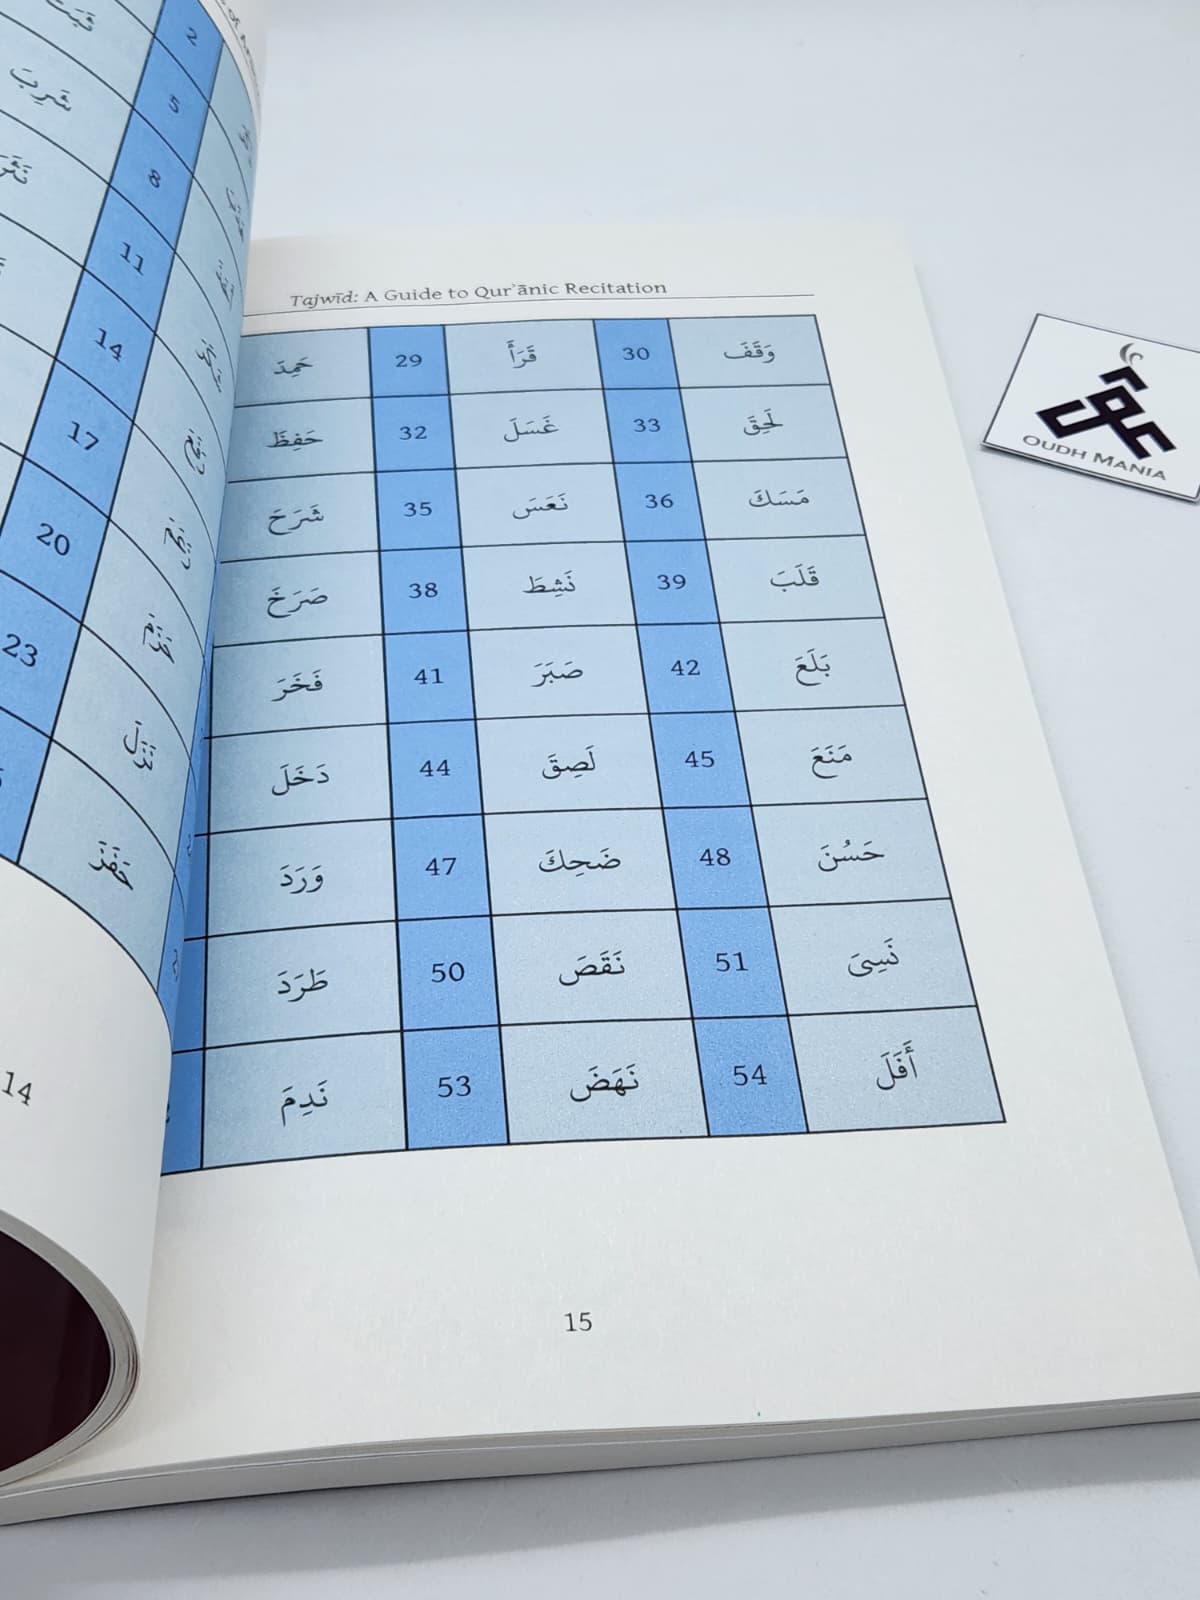 2
5
8
11
14
17
20
23
شَرِبَ
نَزَلَ
حَفَزَ
14
Tajwīd: A Guide to Qur'ānic Recitation
حَمِدَ 29 قَرَأَ 30 وَقَفَ
حَفِظَ 32 غَسَلَ 33 لَحِقَ
شَرَحَ 35 نَعَسَ 36 مَسَكَ
صَرَخَ 38 نَشِطَ 39 قَلَبَ
فَخَرَ 41 صَبَرَ 42 بَلَعَ
دَخَلَ 44 لَصِقَ 45 مَنَعَ
وَرَدَ 47 ضَحِكَ 48 حَسُنَ
طَرَدَ 50 نَقَصَ 51 نَسِىَ
نَدِمَ 53 نَهَضَ 54 أَفَلَ
15
OUDH MANIA